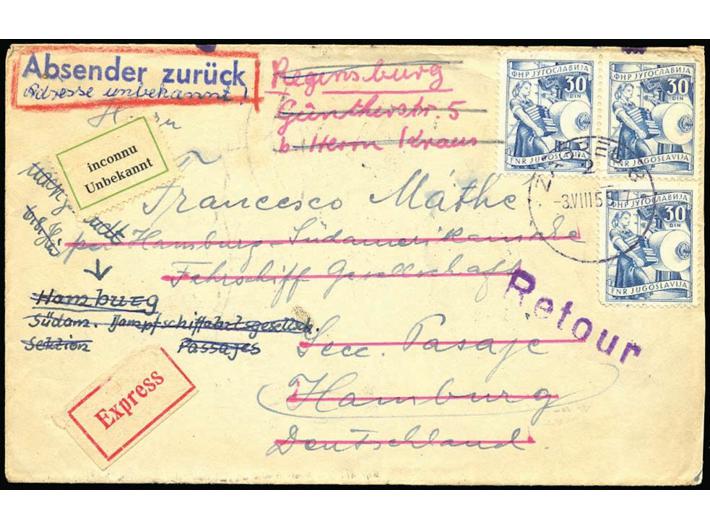 Absender zurück
Adresse unbekannt!
Regensburg
Güntherstr. 5
b. Herrn Kraus
ФНР ЈУГОСЛАВИЈА
30
DIN
FNR JUGOSLAVIJA
ФНР ЈУГОСЛАВИЈА
30
DIN
FNR JUGOSLAVIJA
ФНР ЈУГОСЛАВИЈА
30
DIN
FNR JUGOSLAVIJA
2
-3.VIII.5
inconnu
Unbekannt
Francesco Máthe
per Hamburg-Südamerikanische
Fahrschiff Gesellschaft
Secc. Pasaje
Hamburg
Deutschland.
Hamburg
Südam. Dampfschiffahrtsgesellsch.
Sektion Passajes
Retour
Express